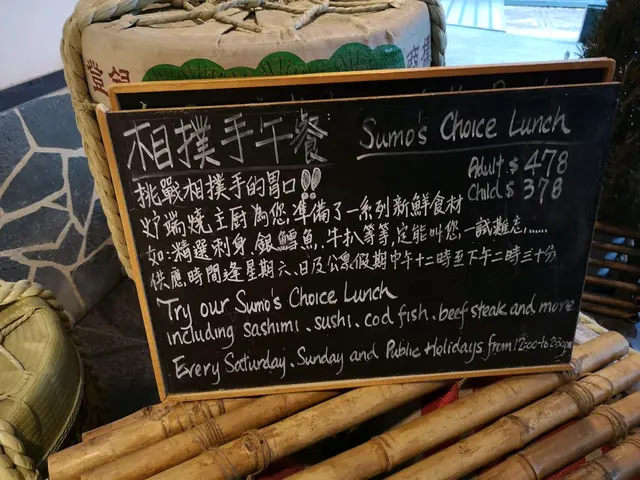 相撲手午餐 Sumo's Choice Lunch
Adult $ 478
Child $ 378
挑戰相撲手的胃口!!
炉端燒主厨為您準備了一系列新鮮食材
如:精選刺身.銀鱈魚.牛扒等等,定能叫您一試難忘......
供應時間逢星期六.日及公眾假期中午十二時至下午二時三十分
Try our Sumo's Choice Lunch
including sashimi.sushi.cod fish.beef steak and more
Every Saturday.Sunday and Public Holidays from 12:00 to 2:30pm